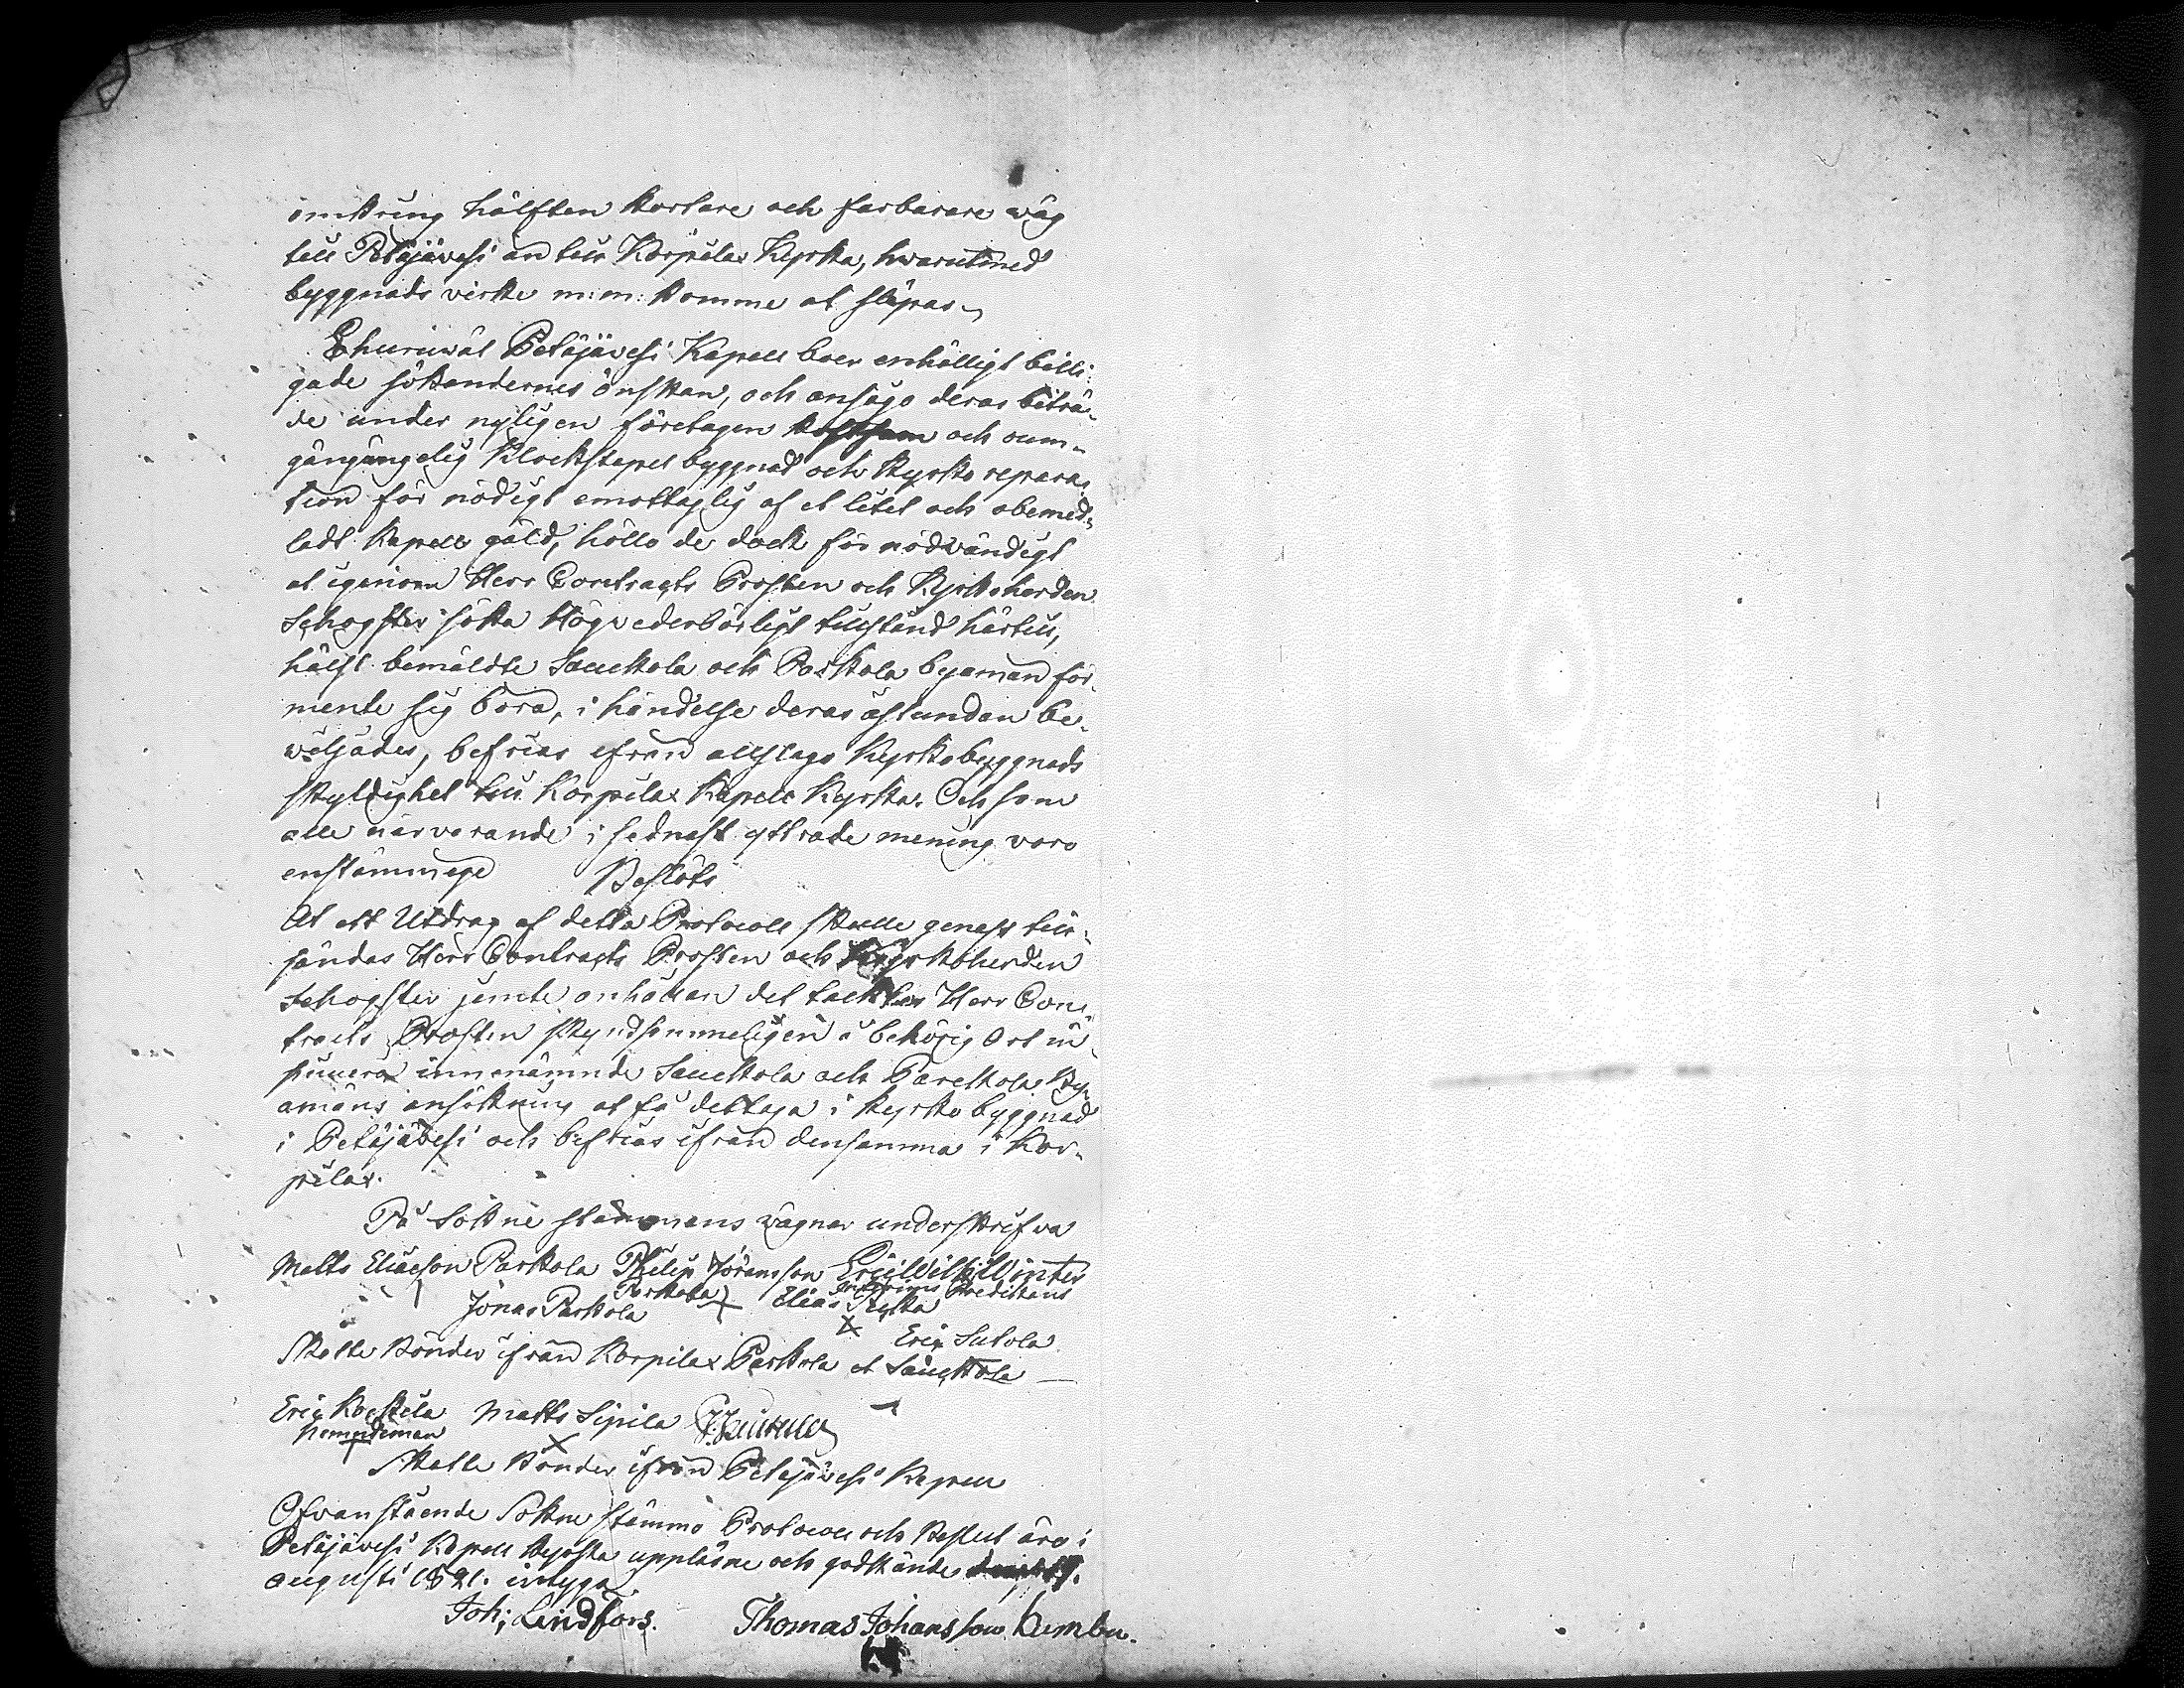 omkring hälften kortare och farbarare wäg
till Petäjävesi än till Korpilax Kyrka, hwarutmed
byggnads virke m:m: komme at släpas.
Ehuruwäl Petäjävesi Kapell boer enhälligt billi-
gade sökandernes önskan, och ansågo deras biträ-
de under nyligen företagen kostsam och oum-
gängelig Klockstapel byggnad och kyrko repara-
tion för nödigt emottaglig af et litet och obemed-
ladt Kapell gäld, höllo de dock för nödvändigt
at igenom Herr Contracts Prosten och Kyrkoherden
söka Högvederbörligt tillstånd härtill,
hälst bemälde Sauckola och Parkola byamän för-
mente sig böra, i händelse deras åstundan be-
wiljades, befrias ifrån allslags Kyrkobyggnads
skyldighet till Korpilax Kapell Kyrka. Och som
alle närvarande i sednast yttrade mening voro
enstämmige Beslöts
At ett Utdrag af detta Protocoll skulle genast till-
sändas Herr Contracts Prosten och Kyrkoherden
jemte anhållan det täcktes Herr Con-
tracts Prosten skyndsammeligen å behörig Ort in-
sinuera innenämnde Sauckola och Parckola By-
amäns ansökning at få deltaga i kyrko byggnad
i Petäjävesi och befrias ifrån densamma i Kor-
pilax.
På Sokne stämmans wägnar underskrifva
Matts Eliaeson Parkola Philip Jöransson Eric Wilh: Winter
Parkola Interims Predikant
Jonas Parkola Elias
Eric Sutola
Bönder ifrån Korpilax Parkola et Sauckola
Eric Koskela Matts Sipila
Nemndeman
Bönder ifrån Petäjävesi Kapell
Ofvanstående Sokne stämmo Protocoll och Beslut äro i
Petäjävesi Kapell Kyrka uppläsne och godkände
Augusti 1821. intyga
Joh: Lindfors. Thomas Johansson